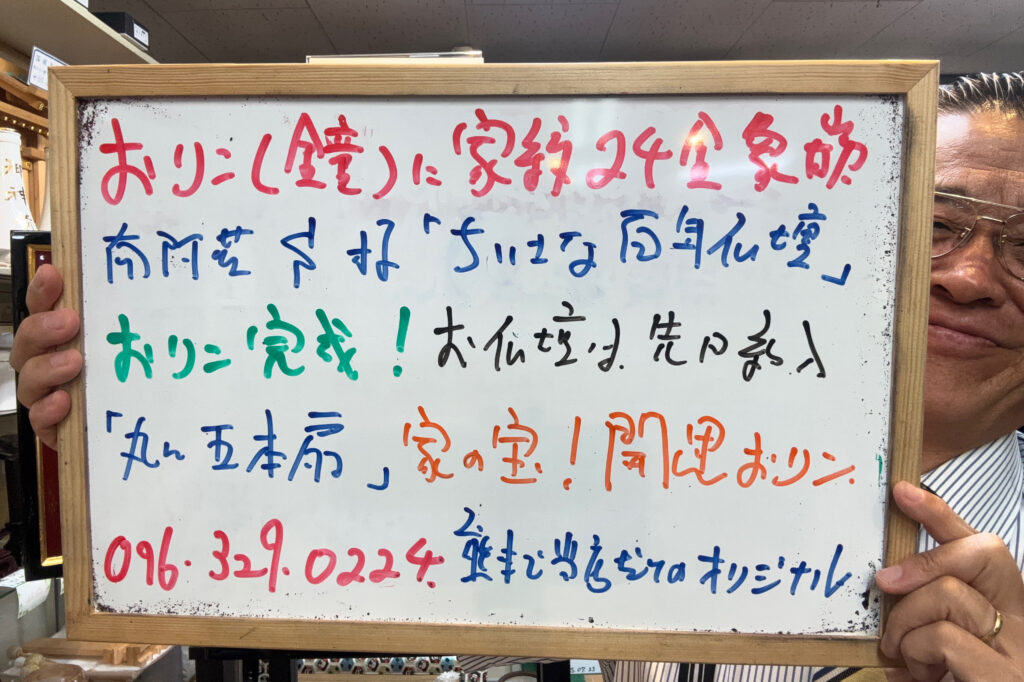 おリン(鐘)に家紋24金象嵌
南阿蘇 F様「ちいさな百年仏壇」
おリン完成！お仏壇は先日納入
「丸に五本扇」家の宝！開思おリン
096.329.0224. 熊本で当店だけのオリジナル